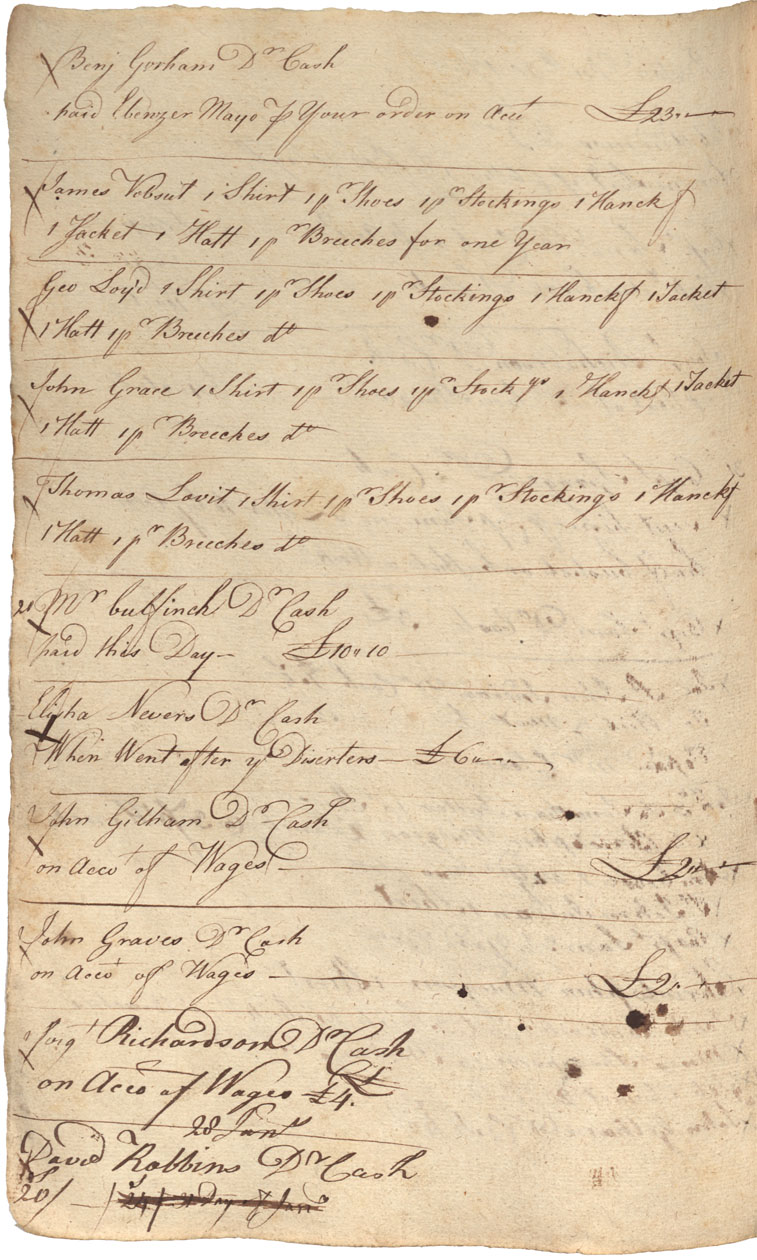 Benj Gorham Dr Cash
paid Ebenzer Mayo ⅌ Your order on Acct £23"—
James 1 Shirt 1 pr Shoes 1 pr Stockings 1 Hanckf
1 Jacket 1 Hatt 1 pr Breeches for one Year
Geo Loyd 1 Shirt 1 pr Shoes 1 pr Stockings 1 Hanckf 1 Jacket
1 Hatt 1 pr Breeches do
John Grace 1 Shirt 1 pr Shoes 1 pr Stockgs 1 Hanckf 1 Jacket
1 Hatt 1 pr Breeches do
Thomas Lovit 1 Shirt 1 pr Shoes 1 pr Stockings 1 Hanckf
1 Hatt 1 pr Breeches do
21 Mr bulfinch Dr Cash
paid this Day — £10"10
Elisha Nevers Dr Cash
When Went after ye Diserters — £6"—
John Gilham Dr Cash
on Acco of Wages — £2"—
John Graves Dr Cash
on Acco of Wages — £2"—
Richardson Dr Cash
on Acco of Wages £4.
28 Jany
David Robbins Dr Cash
20/ — Day of